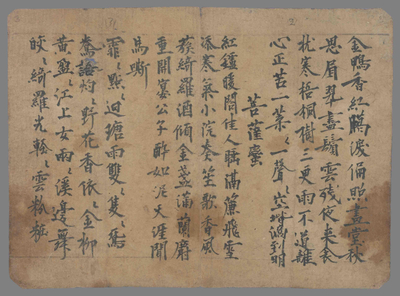 金鴨香紅臘淚偏照畫堂秋
思眉翠盡鬢雲殘夜來衾
枕寒梧桐樹三更雨不道離
心正苦一葉〻一聲〻空堦滴到明
菩薩蠻
紅鑪暖閣佳人睡隔簾飛雪
添寒氣小院奏笙歌香風
簇綺羅酒傾金盞滿蘭麝
重開宴公子醉如泥天涯聞
馬嘶
霏〻點〻迴塘雨雙〻隻〻鴛
鴦語灼〻野花香依〻金柳
黃盈〻江上女兩〻溪邊舞
皎〻綺羅光輕〻雲粉粧